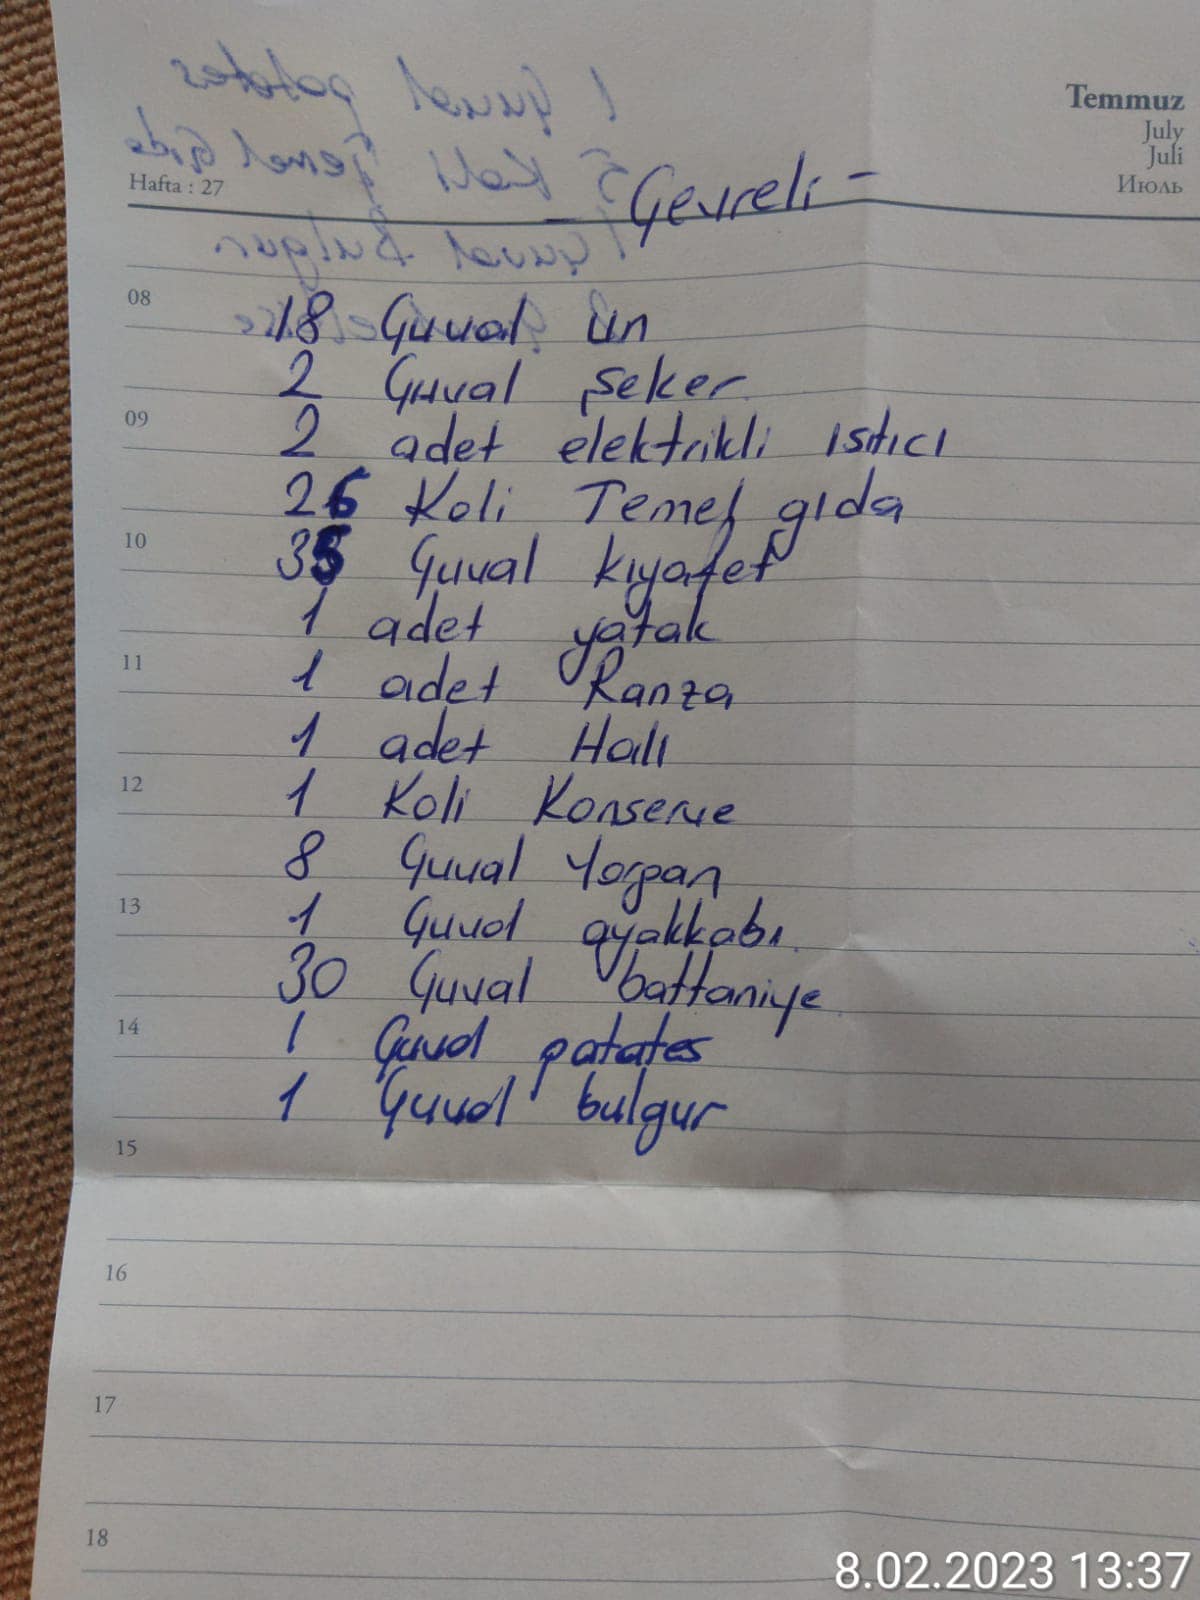 Temmuz
July
Juli
Июль
Hafta : 27
- Gevreli -
08
18 Çuval un
2 Çuval şeker
09
2 adet elektrikli ısıtıcı
26 Koli Temel gıda
10
35 Çuval kıyafet
1 adet yatak
11
1 adet Ranza
1 adet Halı
12
1 Koli Konserve
8 Çuval Yorgan
13
1 Çuval ayakkabı
30 Çuval battaniye
14
1 Çuval patates
1 Çuval bulgur
15
16
17
18
8.02.2023 13:37